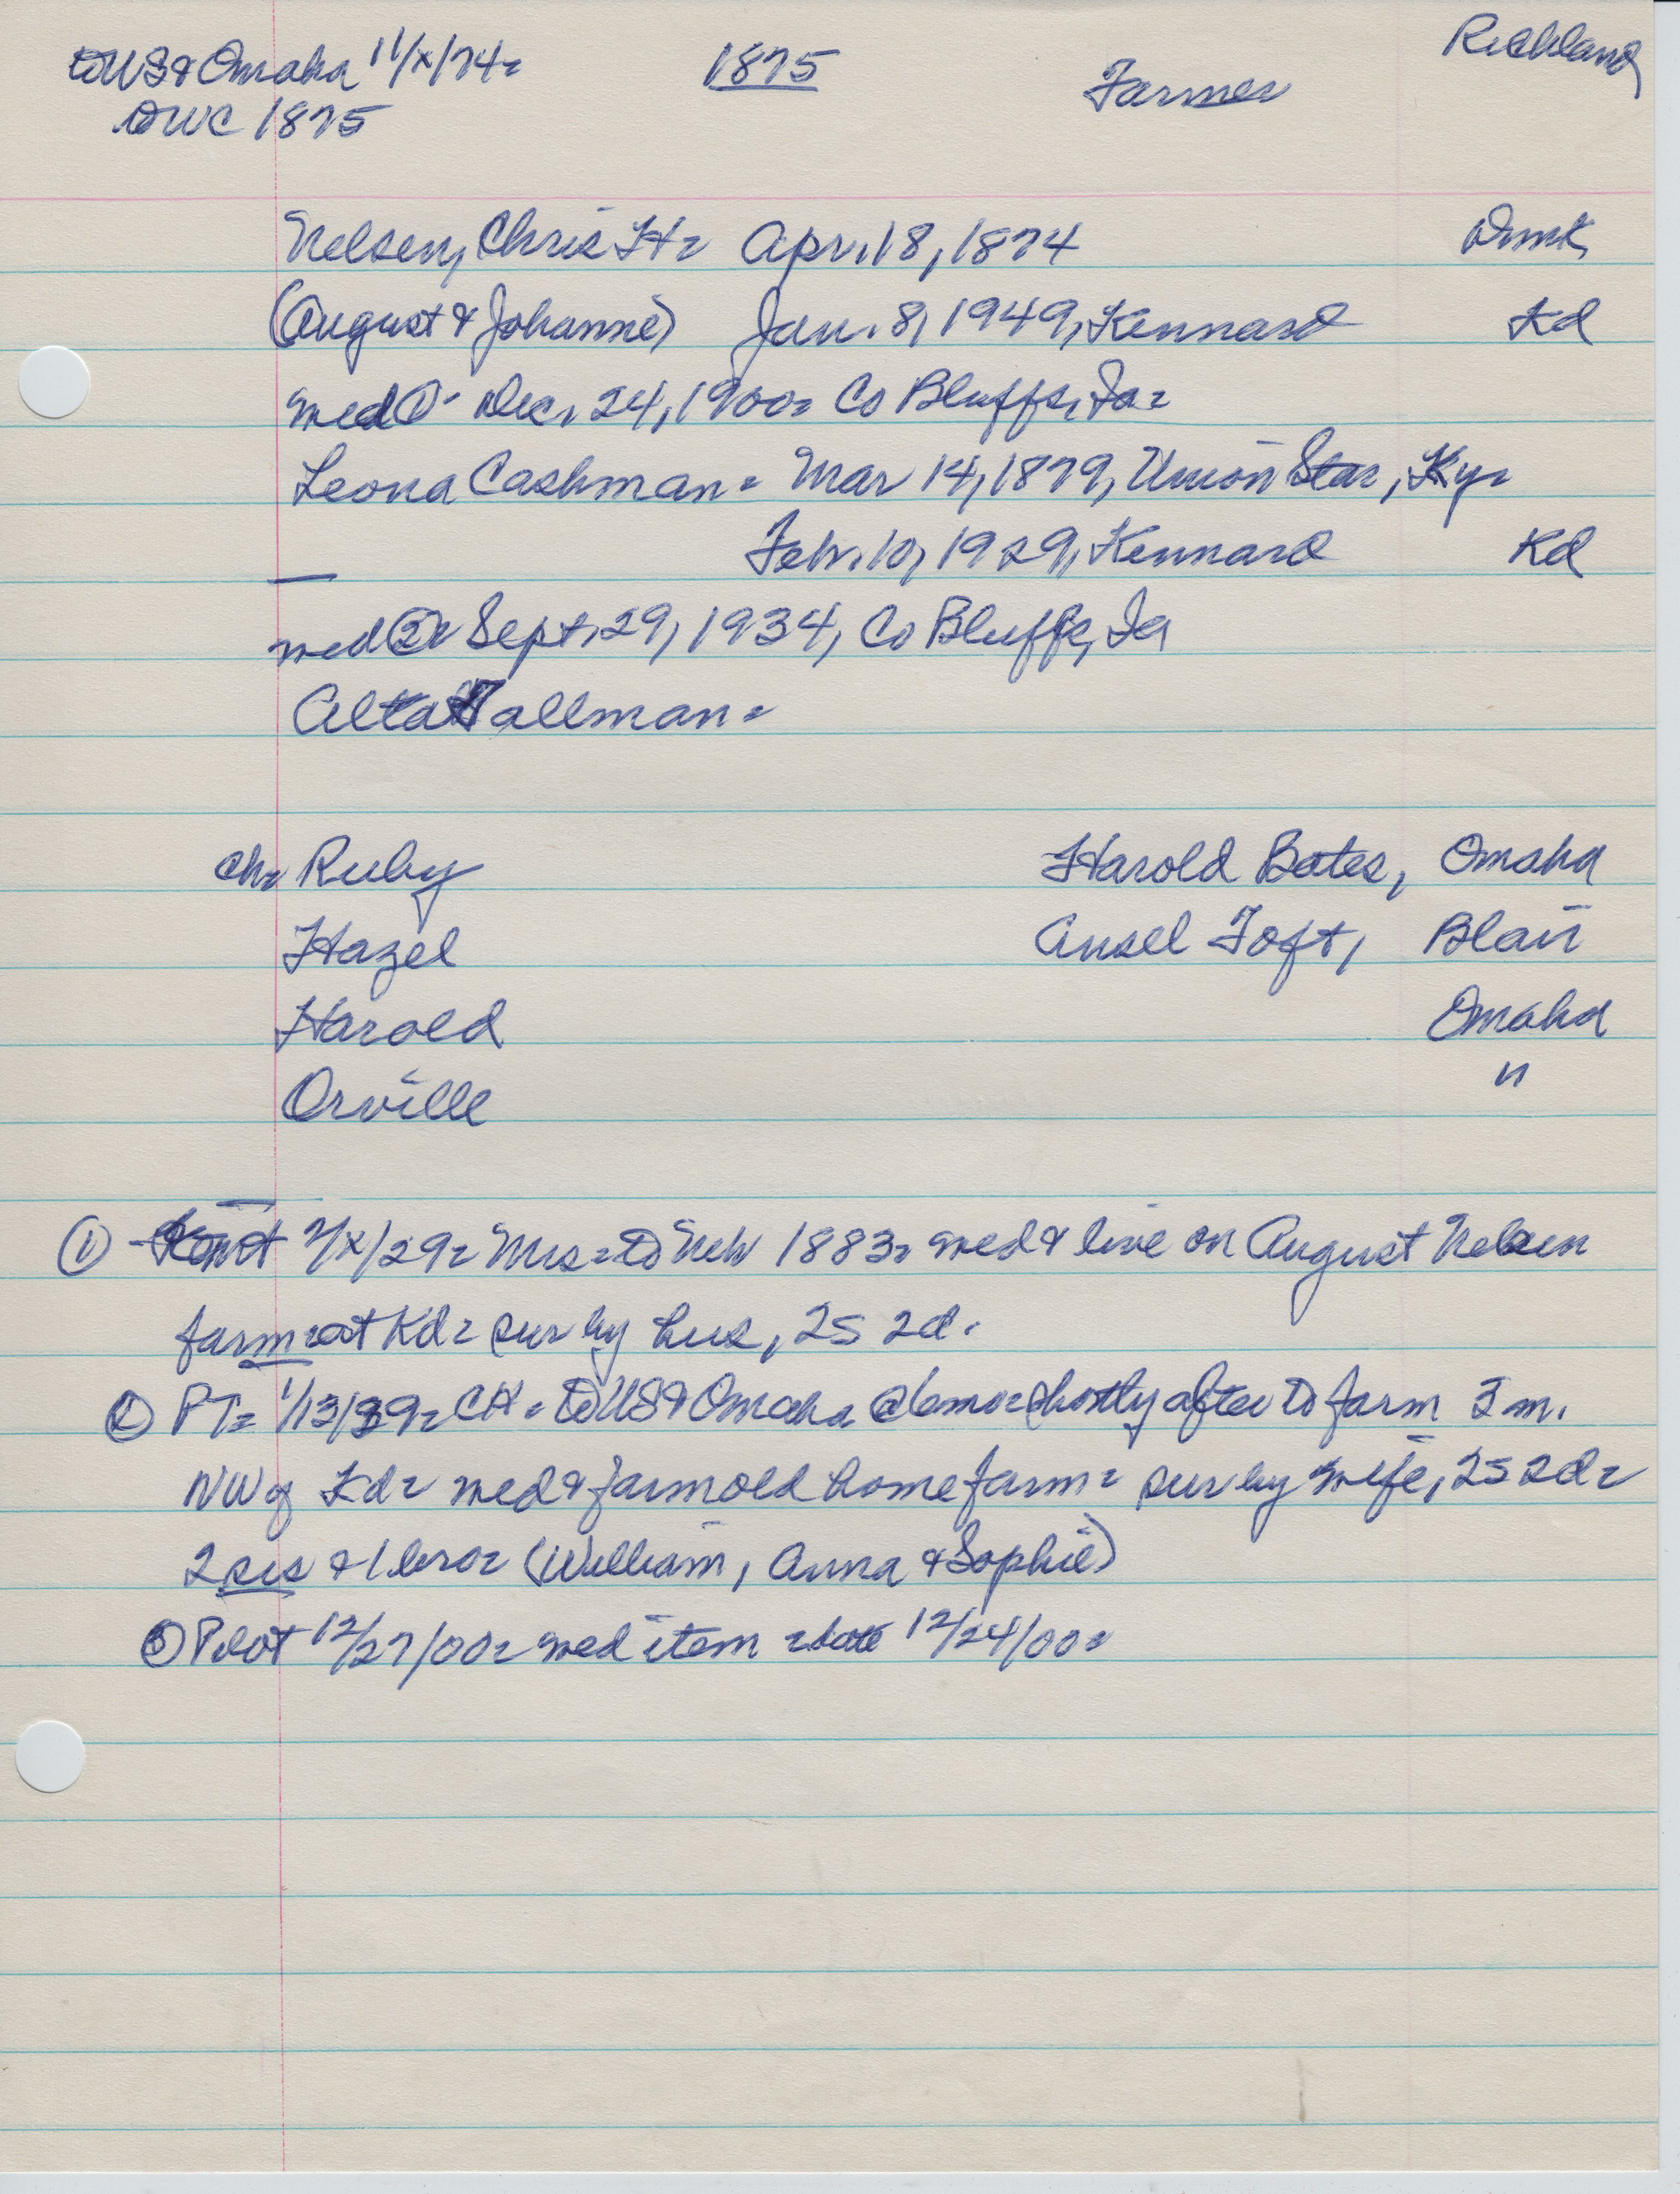 to US & Omaha 11/x/74= 1875 Farmer Richland
to WC 1875
Nelsen, Chris H= Apr. 18, 1874 Dnmk
(August & Johanne) Jan. 8, 1949, Kennard Kd
med ①- Dec. 24, 1900= Co Bluffs, Ia=
Leona Cashman= Mar 14, 1879, Union Star, Ky=
Feb. 10, 1929, Kennard Kd
med ②= Sept. 29, 1934, Co Bluffs, Ia
Alta Tallman=
ch= Ruby Harold Bates, Omaha
Hazel Ansel Toft, Blair
Harold Omaha
Orville "
① 2/x/29= Mrs= to Neb 1883= med & live on August Nelsen
farm at Kd= sur by hus, 2s 2d.
② PT= 1/13/39= CH= to US & Omaha @6mo= shortly after to farm 3 m.
NW of Kd= med & farm old home farm= sur by wife, 2s 2d=
2 sis & 1 bro= (William, Anna & Sophie)
③ Pilot 12/27/00= med item =date 12/24/00=